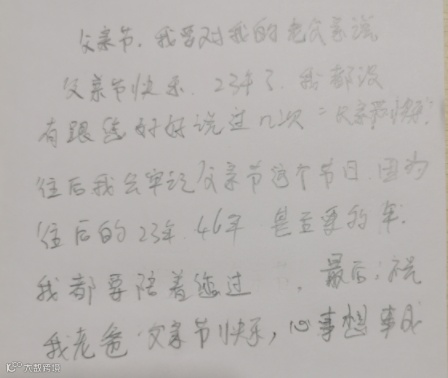 父亲节，我要对我的老父亲说
父亲节快乐．23年了．我都没
有跟您好好说过几次“父亲节快乐”
往后我会牢记父亲节这个节日．因为
往后的23年．46年 甚至更的年．
我都要陪着您过 ．最后；祝
我老爸父亲节快乐，心事想事成
大数跨境